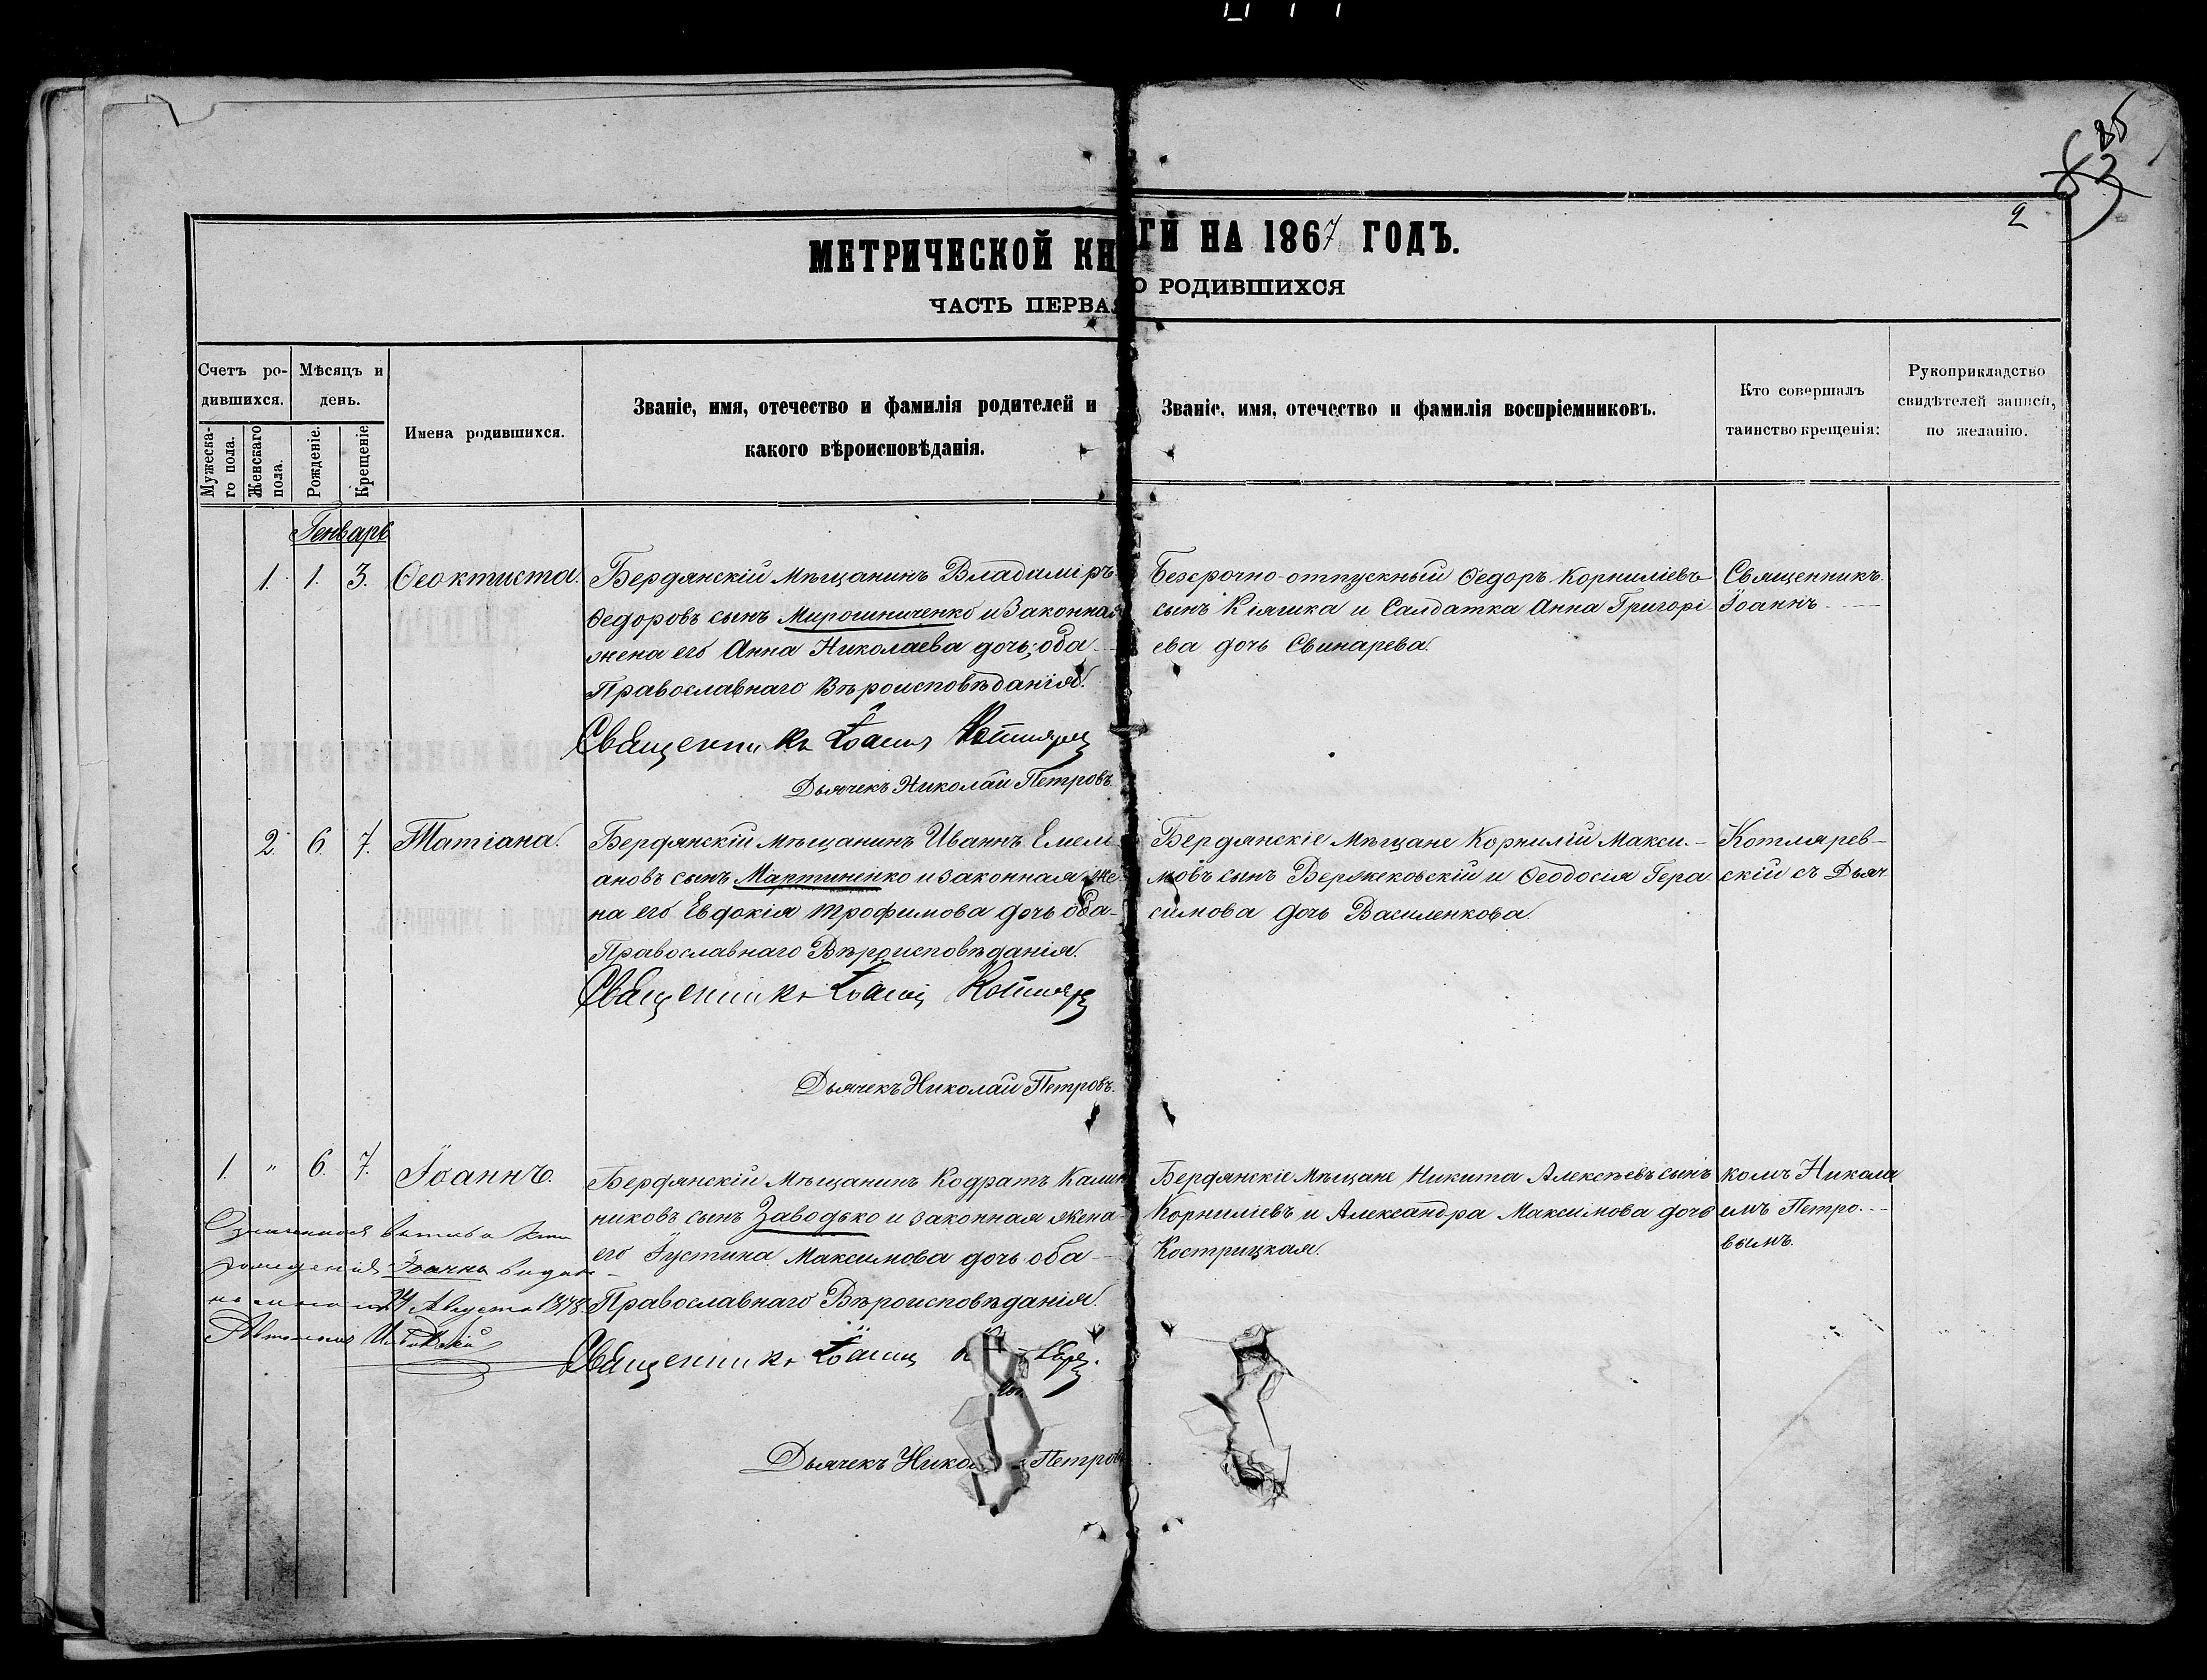 МЕТРИЧЕСКОЙ КН ГИ НА 1867 ГОДЪ.
ЧАСТЬ ПЕРВАЯ О РОДИВШИХСЯ
2
Счетъ ро-
дившихся.
Мужеска-
го пола.
Женскаго
пола.
Мѣсяцъ и
день.
Рожденіе.
Крещеніе
Имена родившихся.
Званіе, имя, отечество и фамилія родителей и
какого вѣроисповѣданія.
Званіе, имя, отечество и фамилія воспріемниковъ.
Кто совершалъ
таинство крещенія:
Рукоприкладство
свидѣтелей записи,
по желанію.
Генварь
1. 1. 3. Ѳеоктиста.
Бердянскій Мѣщанинъ Владиміръ
Ѳедоровъ сынъ Мирошниченко и Законная
жена его Анна Николаева дочь, оба
Православнаго Вѣроисповѣданія.
Священникъ Іоаннъ
Дьячекъ Николай Петровъ.
Безсрочно-отпускный Ѳедоръ Корниліевъ
сынъ Кіяшка и Салдатка Анна Григорі
ева дочь Свинарева.
Священникъ
Іоаннъ
2. 6. 7. Татіана.
Бердянскій Мѣщанинъ Иваннъ Емели
ановъ сынъ Мартиненко и законная же
на его Евдокія Трофимова дочь оба-
Православнаго Вѣроисповѣданія.
Священникъ Іоаннъ
Дьячекъ Николай Петровъ.
Бердянскіе Мѣщане Корнилій Макси-
мовъ сынъ Вержековскій и Ѳеодосія Гера
симова дочь Василенкова.
Котлярев-
скій съ Дьяч
1. " 6. 7. Іоаннъ.
Бердянскій Мѣщанинъ Кодратъ Калин
никовъ сынъ Заводько и законная жена
его Іустина Максимова дочь оба
Православнаго Вѣроисповѣданія.
Священникъ Іоаннъ
Дьячекъ Никол Петровъ
Бердянскіе Мѣщане Никита Алексѣевъ сынъ
Корниліевъ и Александра Максимова дочь
Кострицкая.
комъ Никола
емъ Петро-
вымъ.
рожденія Іоанна выда
24 Августа 1878.